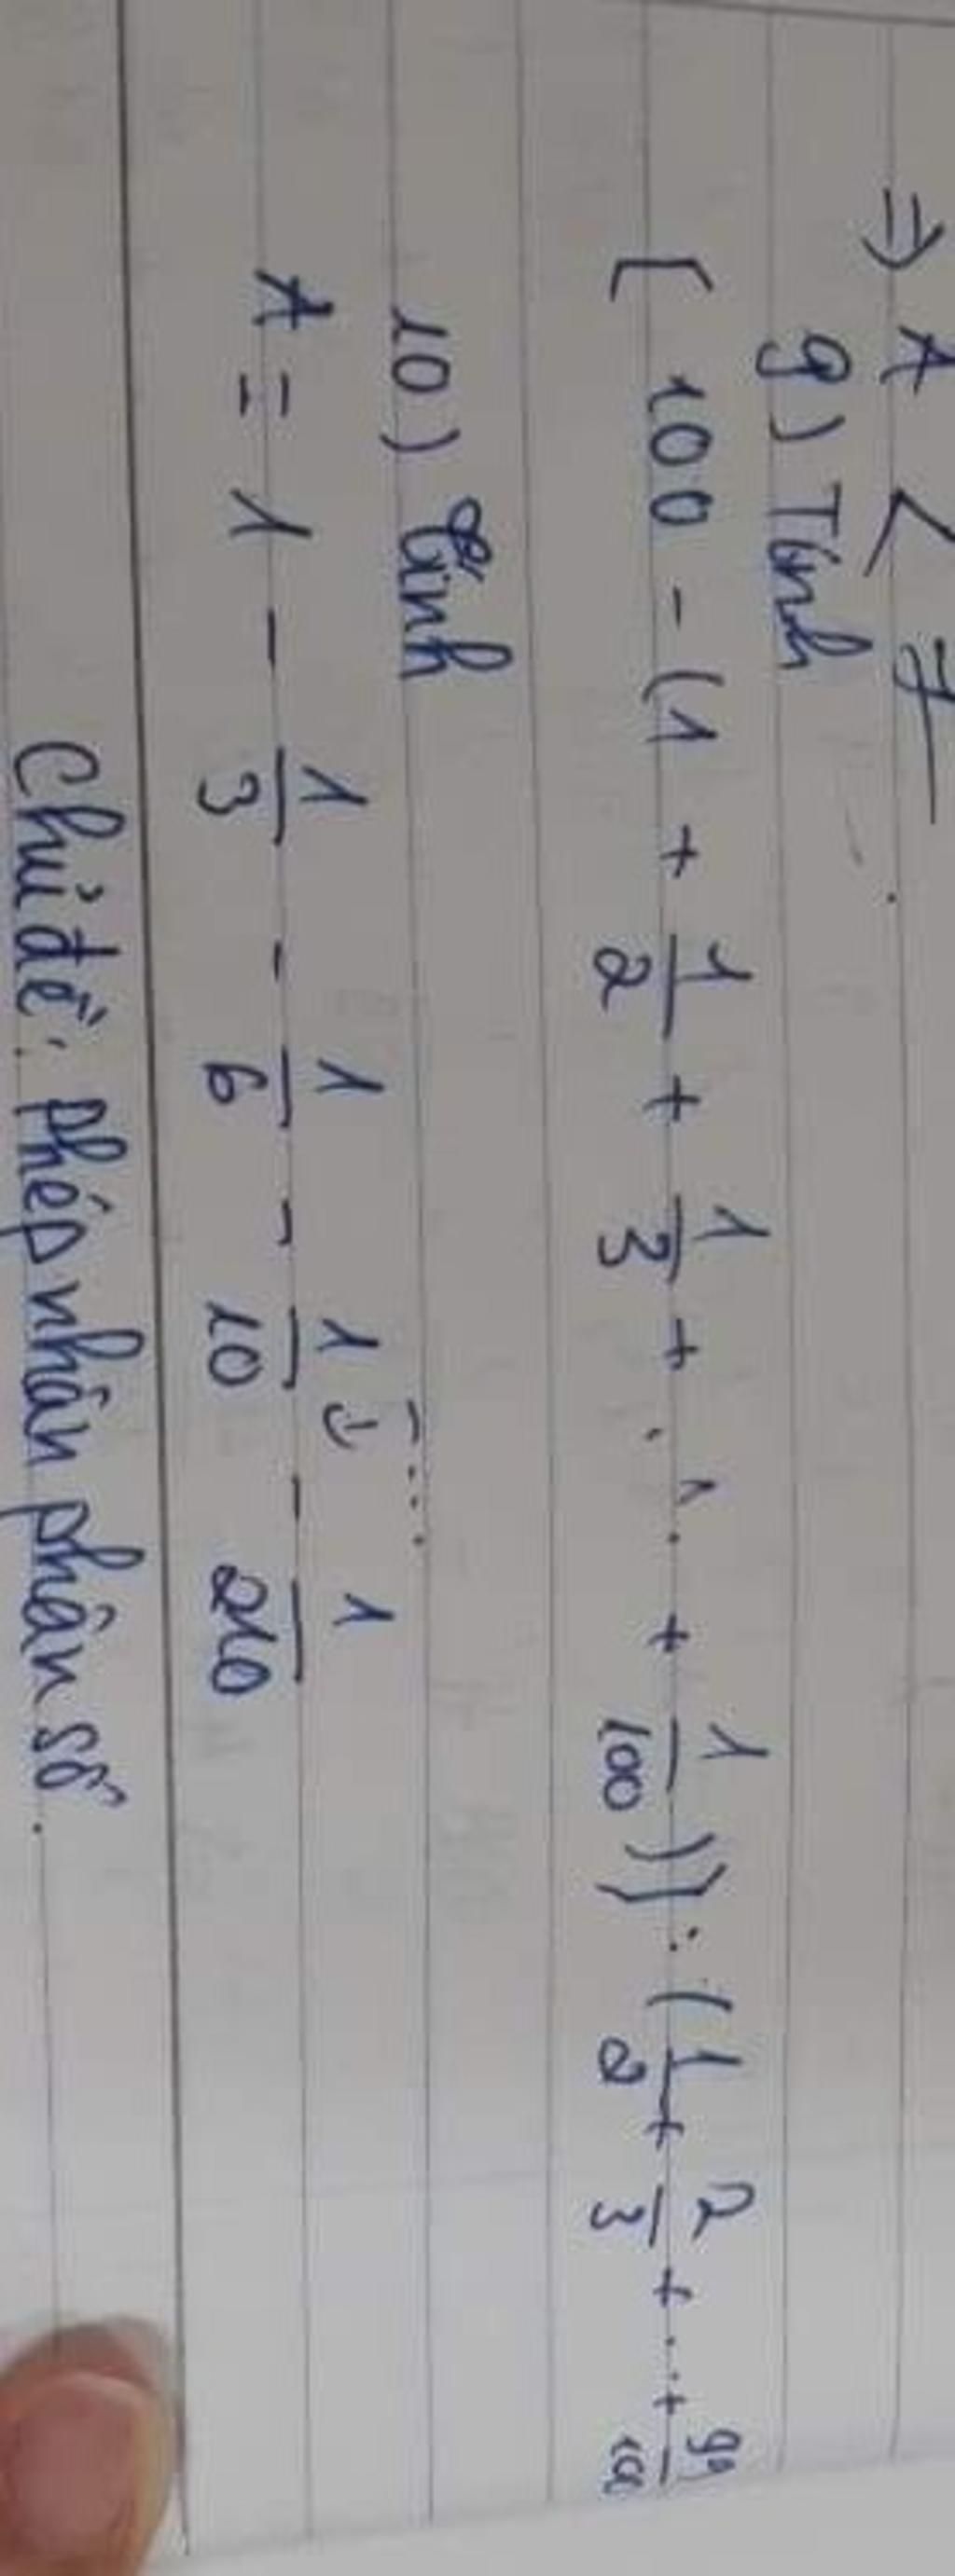 ⇒ A < 7
9) Tính
[ 100 - (1 + 1/2 + 1/3 + ... + 1/100)] : (1/2 + 2/3 + ... + 99/100
10) Tính
A = 1 - 1/3 - 1/6 - 1/10 - ... - 1/210
Chủ đề: Phép nhân phân số.